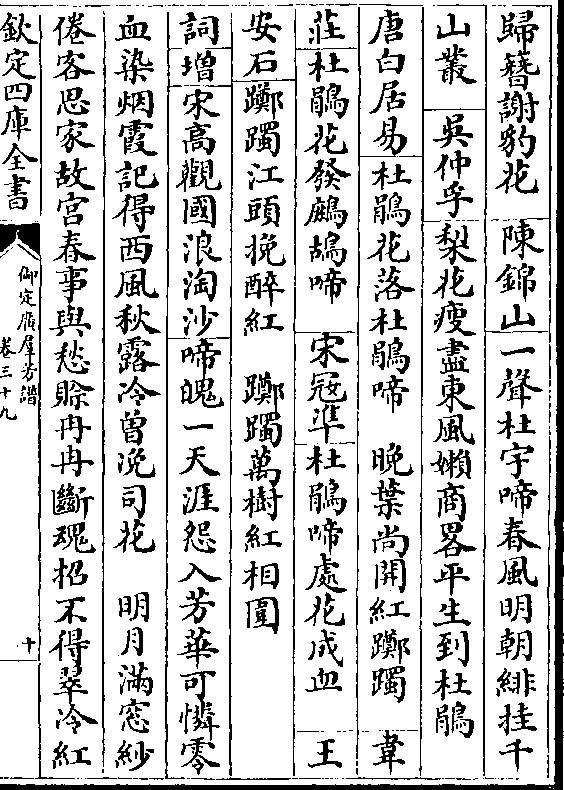 歸簪謝豹花　陳錦山一聲杜宇啼春風明朝緋挂千
山叢　吳仲孚梨花瘦盡東風嬾商畧平生到杜鵑
唐白居易杜鵑花落杜鵑啼　晚葉尚開紅躑躅　韋
莊杜鵑花發鷓鴣啼　宋冦準杜鵑啼處花成血　王
安石躑躅江頭挽醉紅　躑躅萬樹紅相圍
詞增宋高觀國浪淘沙啼魄一天涯怨入芳華可憐零
血染烟霞記得西風秋露冷曾浼司花　明月滿窓紗
倦客思家故宮春事與愁賒冉冉斷魂招不得翠冷紅
欽定四庫全書
御定廣羣芳譜
卷三十九
十